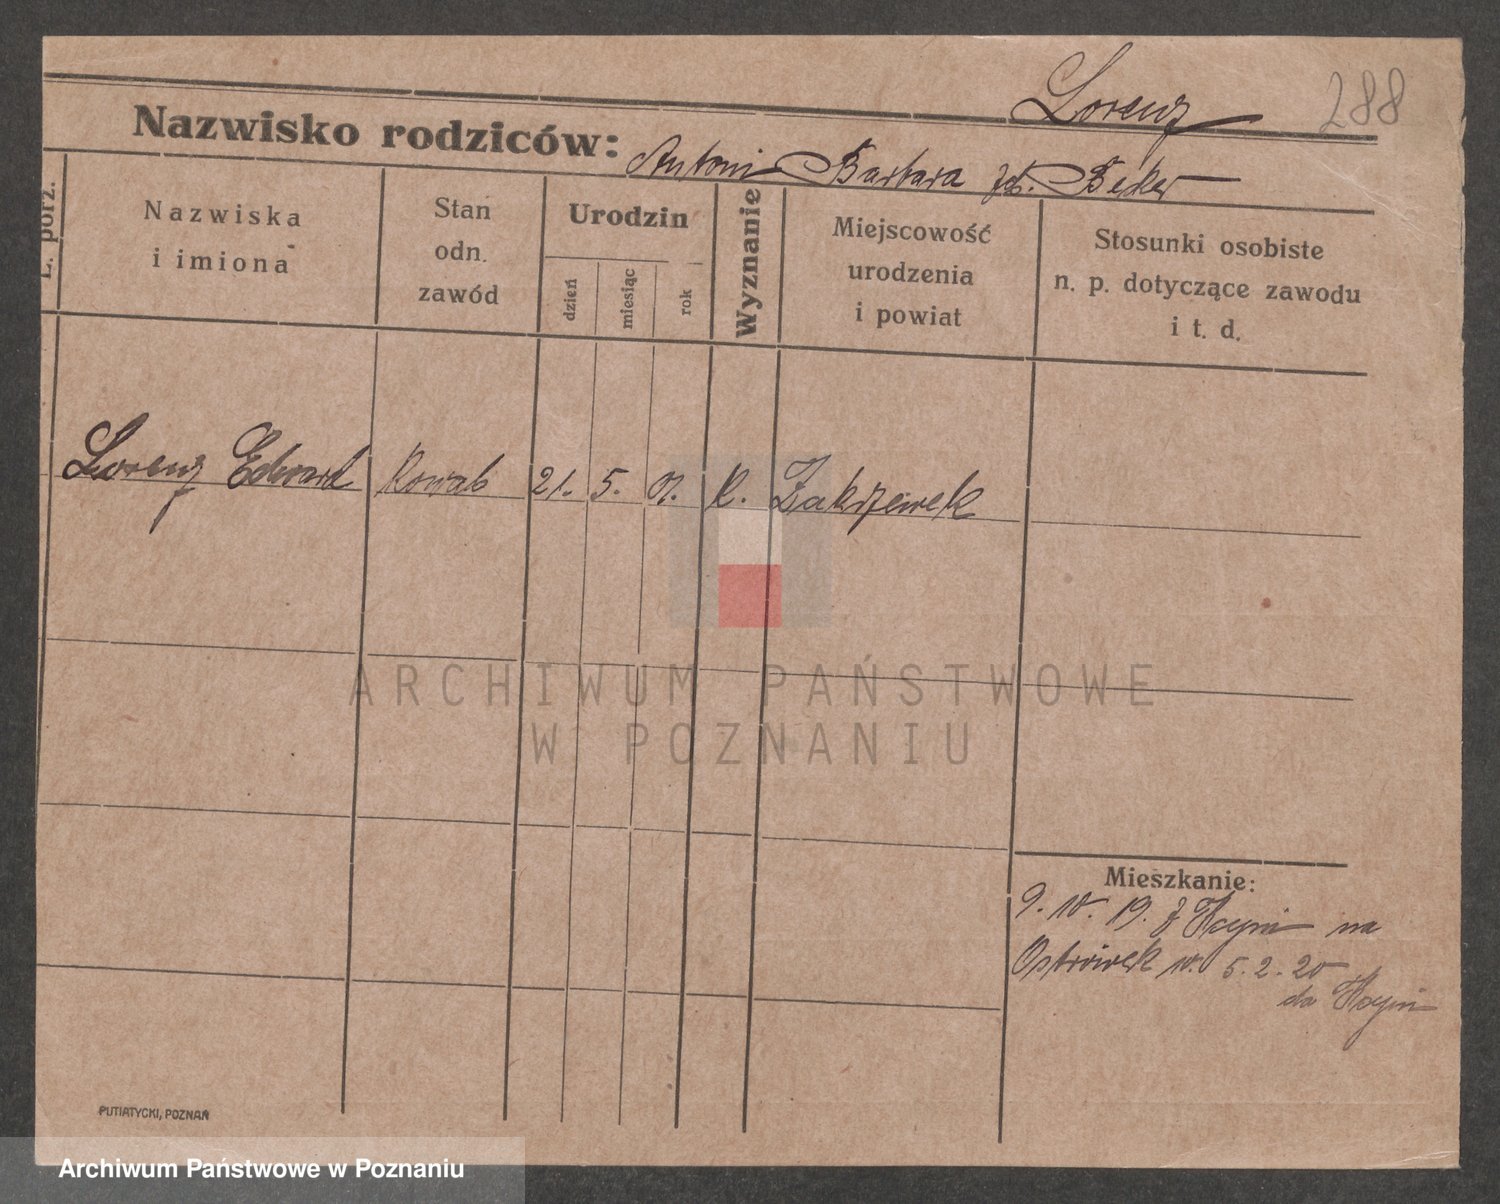 Lorenz 288
Nazwisko rodziców:
Antoni Barbara Beker
L. porz.
Nazwiska
i imiona
Stan
odn.
zawód
Urodzin
dzień
miesiąc
rok
Wyznanie
Miejscowość
urodzenia
i powiat
Stosunki osobiste
n. p. dotyczące zawodu
i t. d.
Lorenz Edward Kowal 21. 5. 01. K. Zakrzewek
ARCHIWUM PAŃSTWOWE
W POZNANIU
Mieszkanie:
9. 10. 19. z Kcyni na
Ostrówek w. 5. 2. 20
do Kcyni
PUTIATYCKI, POZNAŃ
Archiwum Państwowe w Poznaniu